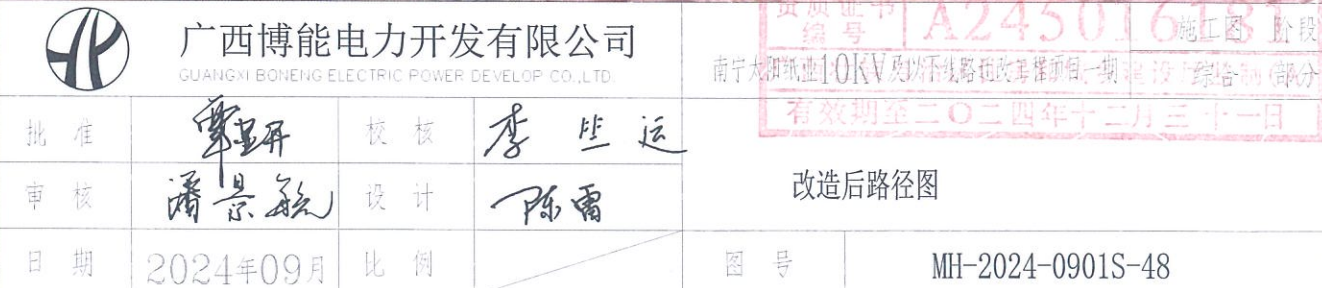 广西博能电力开发有限公司
GUANGXI BONENG ELECTRIC POWER DEVELOP CO.,LTD
资质证书
编号
A245016181
施工图 阶段
南宁太阳纸业10KV及以下线路迁改工程项目一期
综合 部分
有效期至二〇二四年十二月三十一日
批 准
覃显研
校 核
李 毕 运
审 核
潘景毓
设 计
陈雷
改造后路径图
日 期
2024年09月
比 例
图 号
MH-2024-0901S-48